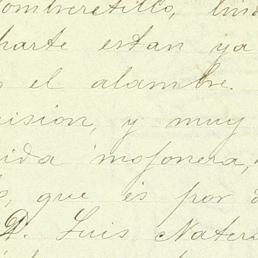 ombretillo, lin
harte estan ya
s el alambre.
ision, y muy
ida mojonera,
, que es por
D. Luis Nater